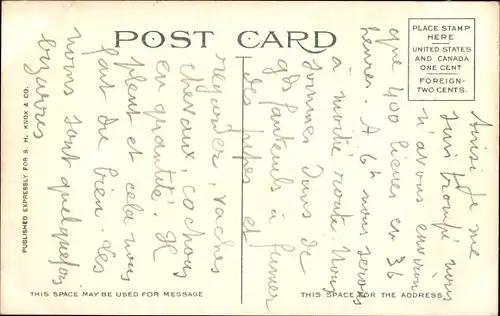 POST CARD
PLACE STAMP
HERE
UNITED STATES
AND CANADA
ONE CENT
FOREIGN-
TWO CENTS.
Ainsi je me
suis trompé nous
n'avons environ
que 400 lieues en 36
heures. A 6h nous serons
à moitié route. Nous
sommes dans de
gds fauteuils à fumer
des pipes et
regarder, vaches
chevaux, cochons
en quantité. Il
pleut et cela nous
fait du bien. Les
noms sont quelquefois
bizarres
PUBLISHED EXPRESSLY FOR S. H. KNOX & CO.
THIS SPACE MAY BE USED FOR MESSAGE
THIS SPACE FOR THE ADDRESS